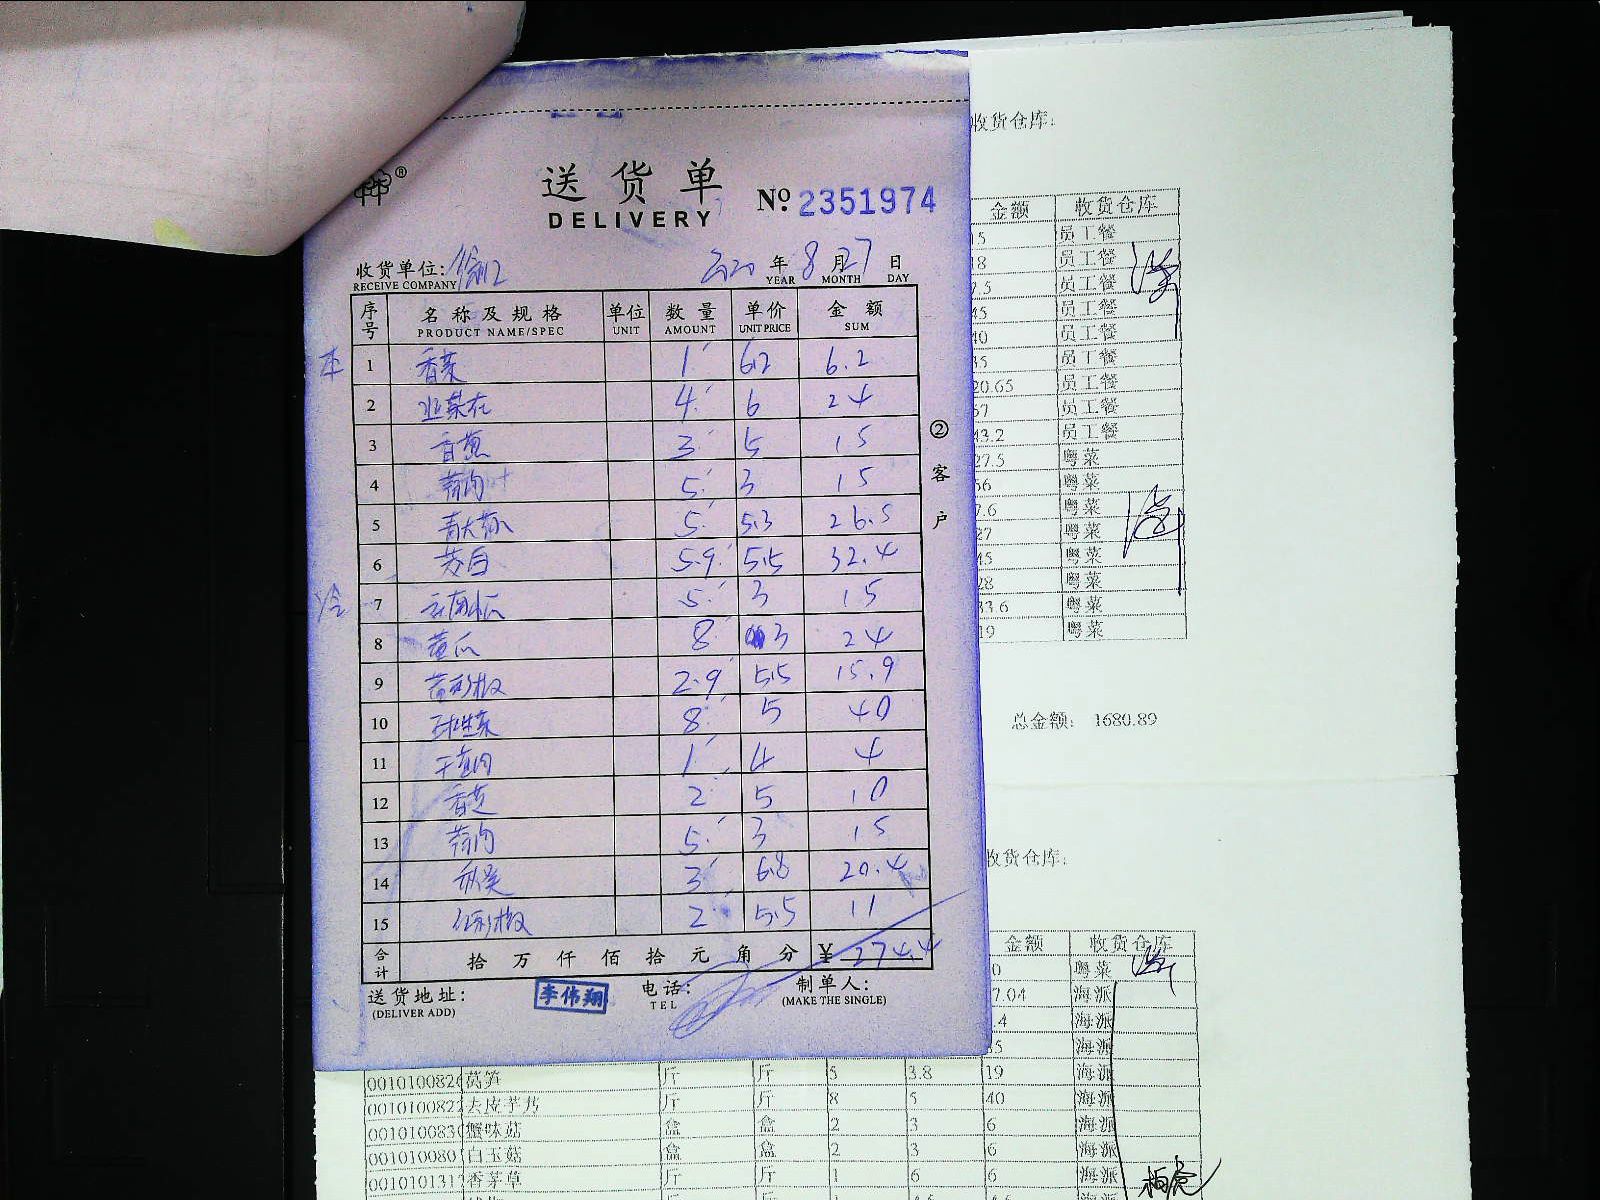 送货单
DELIVERY
№ 2351974
收货单位:
RECEIVE COMPANY
2020 年 8 月 27 日
YEAR MONTH DAY
序号 名称及规格 单位 数量 单价 金额
PRODUCT NAME/SPEC UNIT AMOUNT UNIT PRICE SUM
本 1 香菜 1 6.2 6.2
2 韭菜花 4 6 24
3 香葱 3 5 15
4 5 3 15
5 5 5.3 26.5
6 5.9 5.5 32.4
冷 7 云南小瓜 5 3 15
8 黄瓜 8 3 24
9 黄彩椒 2.9 5.5 15.9
10 球生菜 8 5 40
11 1 4 4
12 香芝 2 5 10
13 5 3 15
14 秋葵 3 6.8 20.4
15 红彩椒 2 5.5 11
合计 拾 万 仟 佰 拾 元 角 分 ¥ 274.4
送货地址:
(DELIVER ADD)
李伟翔
电话:
TEL
制单人:
(MAKE THE SINGLE)
②客户
收货仓库:
金额 收货仓库
5 员工餐
8 员工餐
.5 员工餐
45 员工餐
40 员工餐
员工餐
20.65 员工餐
57 员工餐
43.2 员工餐
27.5 粤菜
56 粤菜
7.6 粤菜
27 粤菜
45 粤菜
28 粤菜
33.6 粤菜
19 粤菜
总金额: 1680.89
收货仓库:
金额 收货仓库
0 粤菜
7.04 海派
.4 海派
35 海派
001010082 莴笋 斤 斤 5 3.8 19 海派
001010082 去皮芋艿 斤 斤 8 5 40 海派
001010083 蟹味菇 盒 盒 2 3 6 海派
001010080 白玉菇 盒 盒 2 3 6 海派
001010131 香茅草 斤 斤 1 6 6 海派